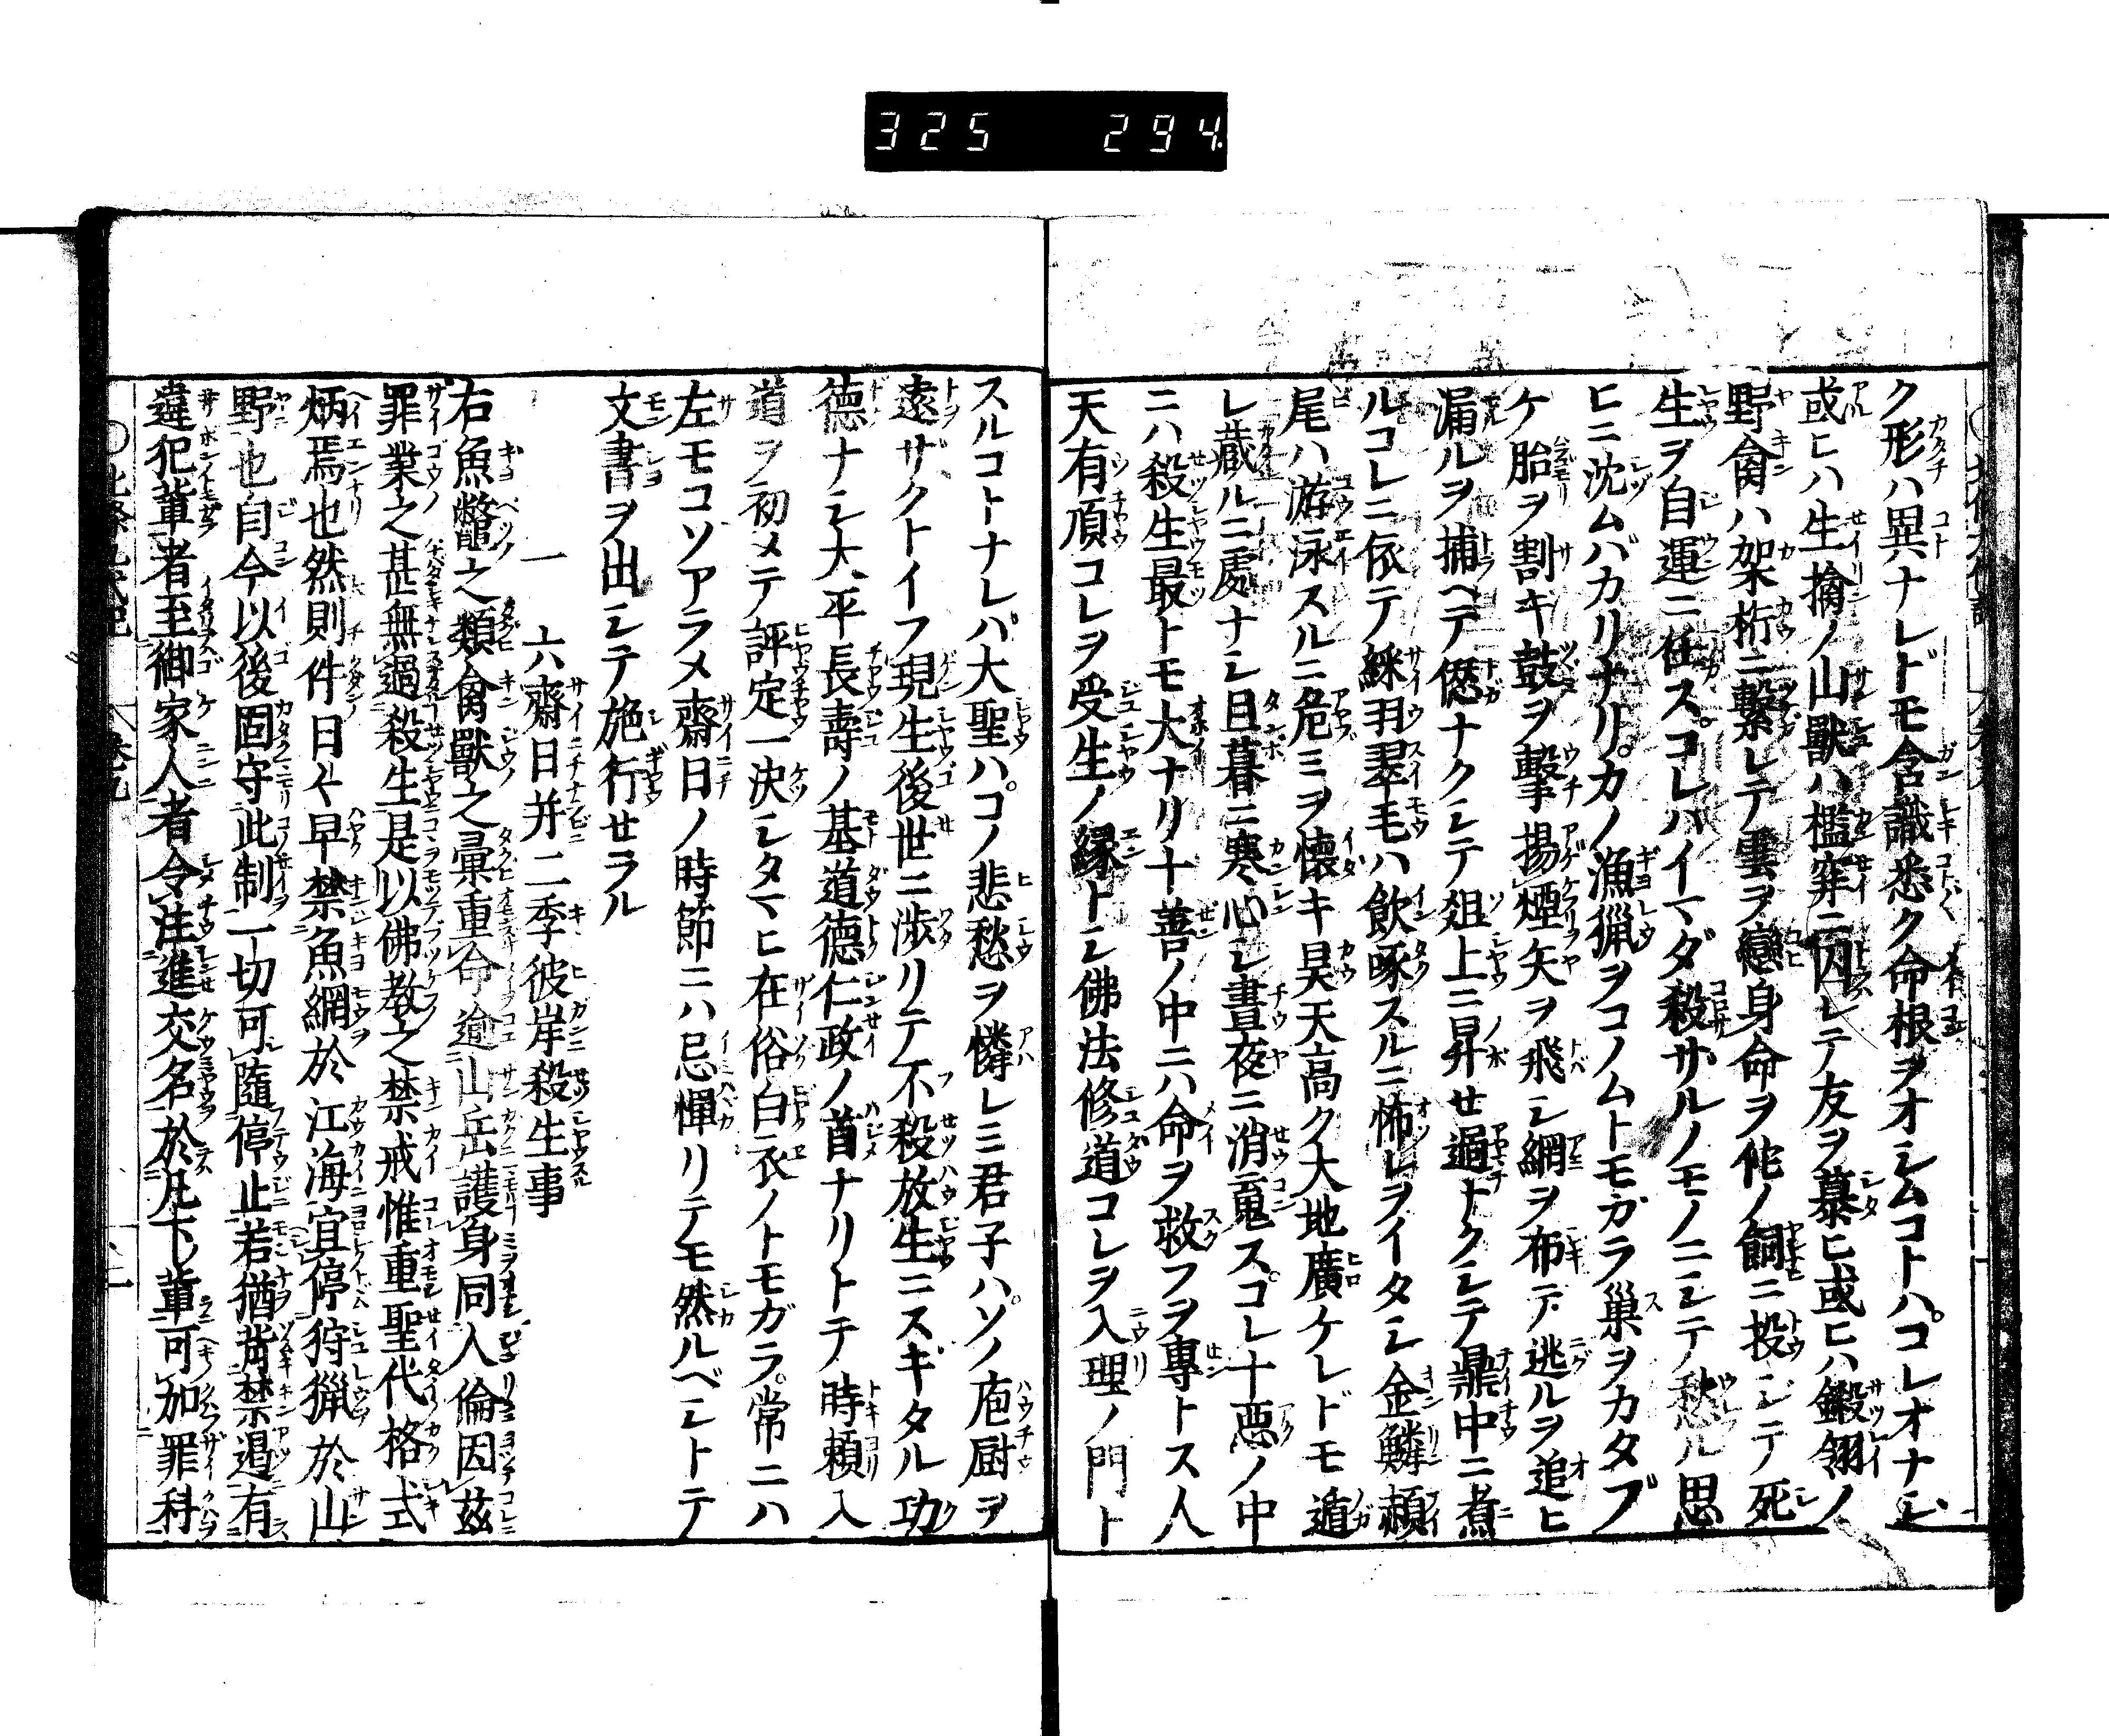 325 294
ク形ハ異ナレドモ含識悉ク命根ヲオシムコトハ。コレオナシ
或ヒハ生擒ノ山獸ハ檻穽ニ囚レテ友ヲ慕ヒ或ヒハ鎩翎ノ
野禽ハ架桁ニ繫レテ雲ヲ戀身命ヲ佗ノ飼ニ投シテ死
生ヲ自運ニ任ス。コレハイマダ殺サルノモノニシテ愁ル思
ヒニ沈ムバカリナリ。カノ漁獵ヲコノムトモガラ巢ヲカタブ
ケ胎ヲ割キ鼓ヲ擊揚煙矢ヲ飛シ網ヲ布テ逃ルヲ追ヒ
漏ルヲ捕ヘテ僁ナクシテ爼上ニ昇セ過トクシテ鼎中ニ煮
ルコレニ依テ綵羽翠毛ハ飮啄スルニ怖レヲイタシ金鱗頳
尾ハ游泳スルニ危ミヲ懷キ昊天高ク大地廣ケレドモ遁
レ藏ルニ處ナシ旦暮ニ寒心シ晝夜ニ消䰟ス。コレ十惡ノ中
ニハ殺生最トモ大ナリ十善ノ中ニハ命ヲ救フヲ專トス人
天有頂コレヲ受生ノ緣トシ佛法修道コレヲ入理ノ門ト
スルコトナレバ大聖ハ。コノ悲愁ヲ憐レミ君子ハ。ソノ庖厨ヲ
遠ザクトイフ現生後世ニ涉リテ不殺放生ニスギタル功
德ナシ大平長壽ノ基道德仁政ノ首ナリトテ時賴入
道ヲ初メテ評定一決シタマヒ在俗白衣ノトモガラ。常ニハ
左モコソアラメ齋日ノ時節ニハ忌憚リテモ然ルベシトテ
文書ヲ出シテ施行せラル
一 六齋日并二季彼岸殺生事
右魚鼈之類禽獸之彙重命逾山岳護身同人倫因玆
罪業之甚無過殺生是以佛教之禁戒惟重聖代格式
炳焉也然則件日々早禁魚網於江海宜停狩獵於山
野也自今以後固守此制一切可隨停止若猶背禁遏有
違犯輩者至御家人者令注進交名於凡下輩可加罪科